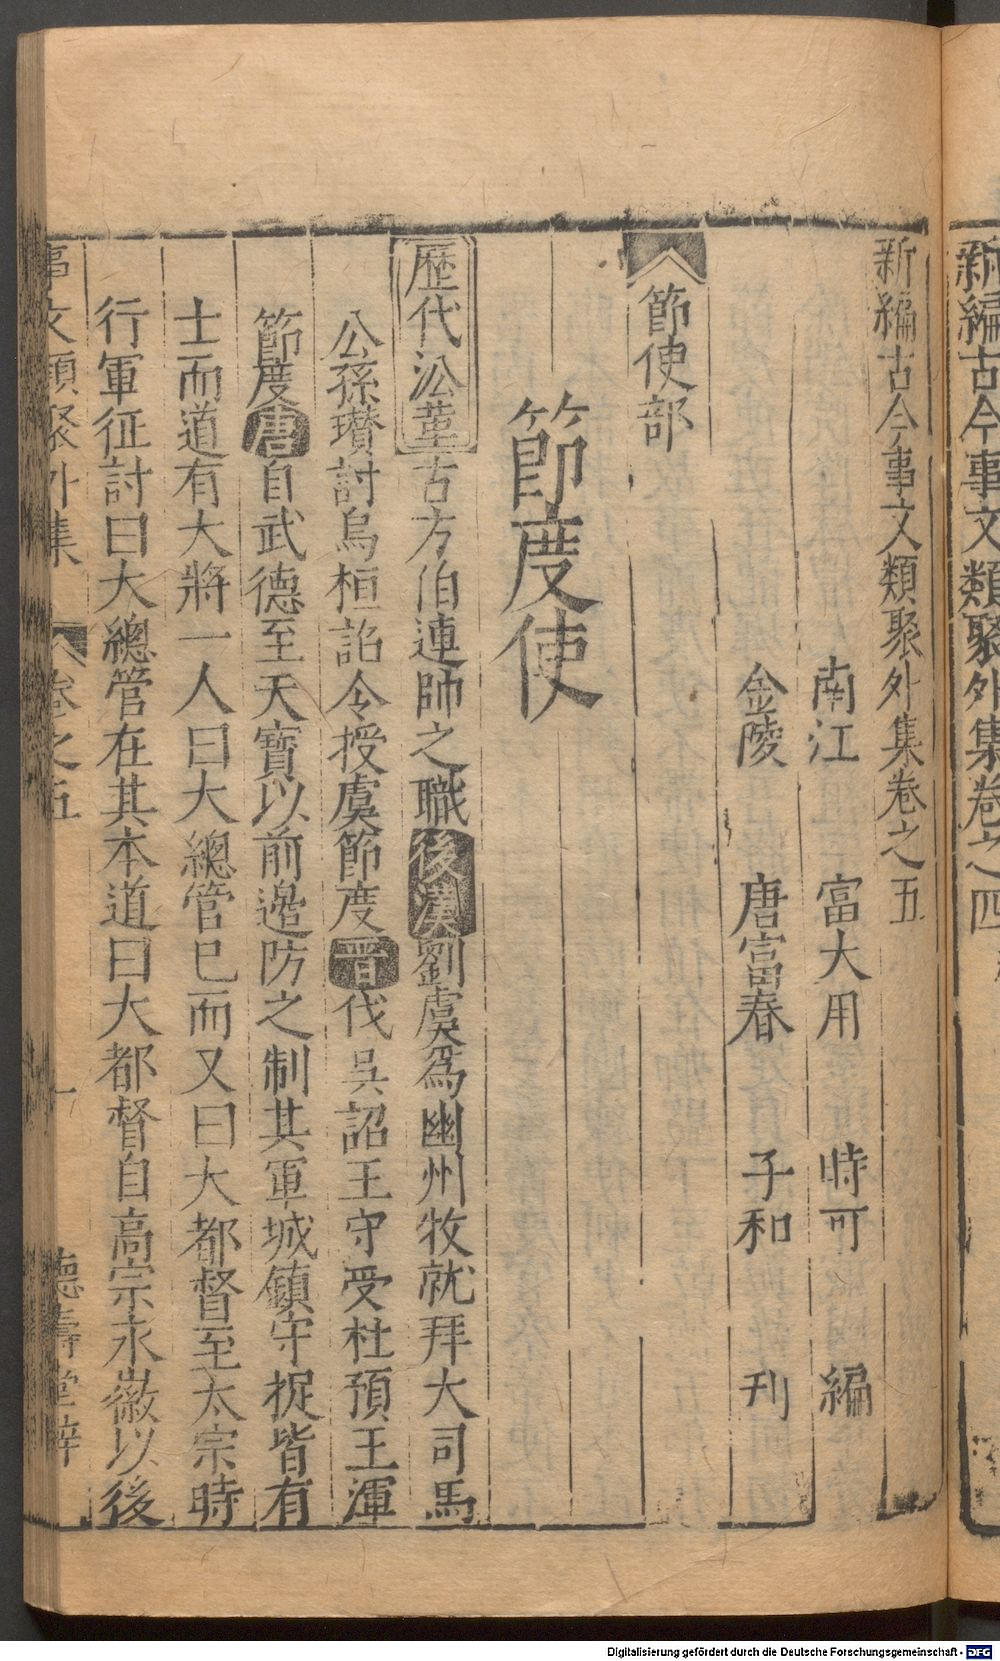 新編古今事文類聚外集卷之四
新編古今事文類聚外集卷之五
南江 富大用 時可 編
金陵 唐富春 子和 刋
節使部
節度使
歷代沿革古方伯連帥之職後漢劉虞爲幽州牧就拜大司馬
公孫瓚討烏桓詔令授虞節度晋伐吳詔王守受杜預王渾
節度唐自武德至天寶以前邉防之制其軍城鎮守捉皆有
士而道有大將一人曰大總管巳而又曰大都督至太宗時
行軍征討曰大總管在其本道曰大都督自高宗永徽以後
事文類聚外集 卷之五 一 德壽堂梓
Digitalisierung gefördert durch die Deutsche Forschungsgemeinschaft - DFG